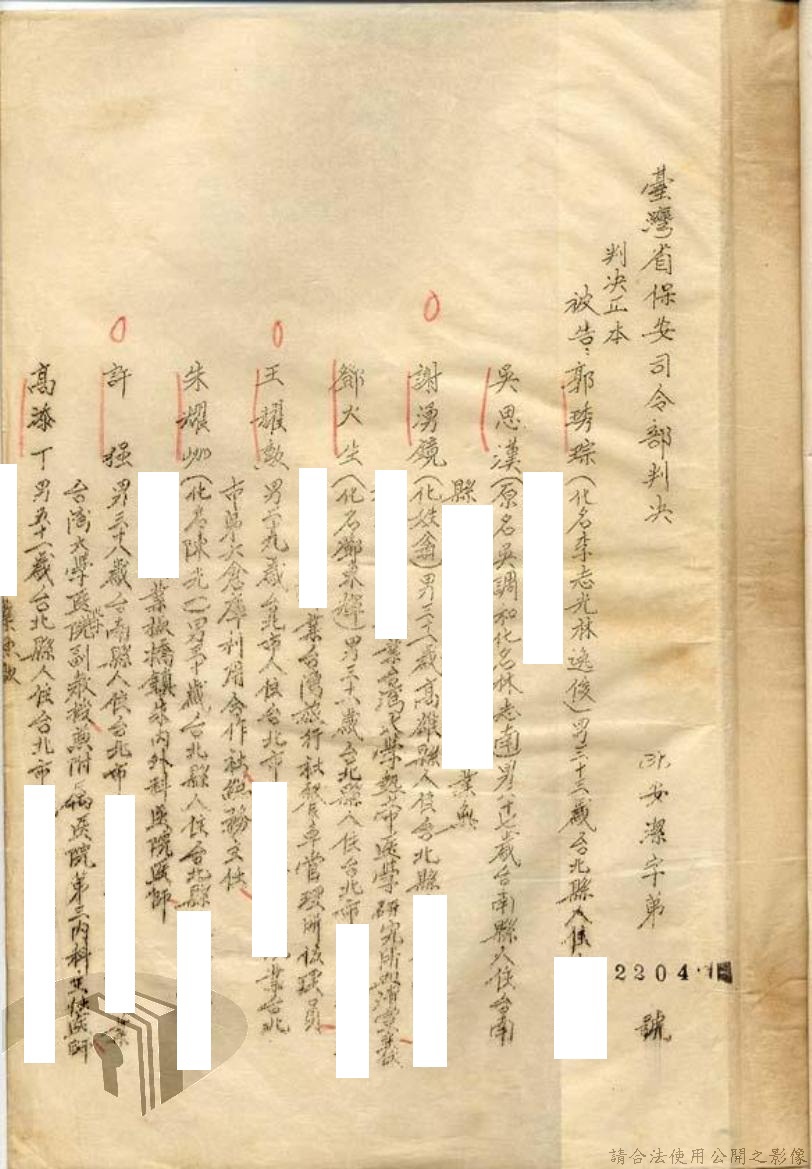 臺灣省保安司令部判决
安潔字第2204號
判决正本
被告:郭琇琮(化名李志光林逸俊)男三十三歲台北縣人住
吳思漢(原名吳調和化名林志南)男廿七歲台南縣人住台南
縣 業無
謝湧鏡(化姓翁)男三十一歲高雄縣人住台北縣
業台灣大學熱帶医學研究所血清
鄧火生(化名鄧東輝)男三十六歲台北縣人住台北市
業台灣旅行社 車管理所
王耀勲 男二十九歲台北市人住台北市 業台北
市第六倉庫利用合作社総務主任
朱耀珈(化名陳光)男三十歲台北縣人住台北縣
業板橋鎮朱內外科医院医師
許强 男三十八歲台南縣人住台北市 業
台灣大學医院副教授兼附属医院第三內科主任医師
高添丁男五十一歲台北縣人住台北市
請合法使用公開之影像